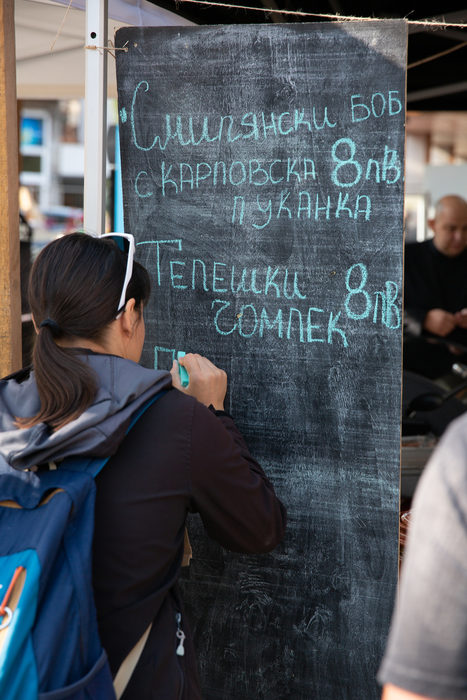 Смилянски боб
с карловска 8лв
луканка
Телешки 8лв
чомлек